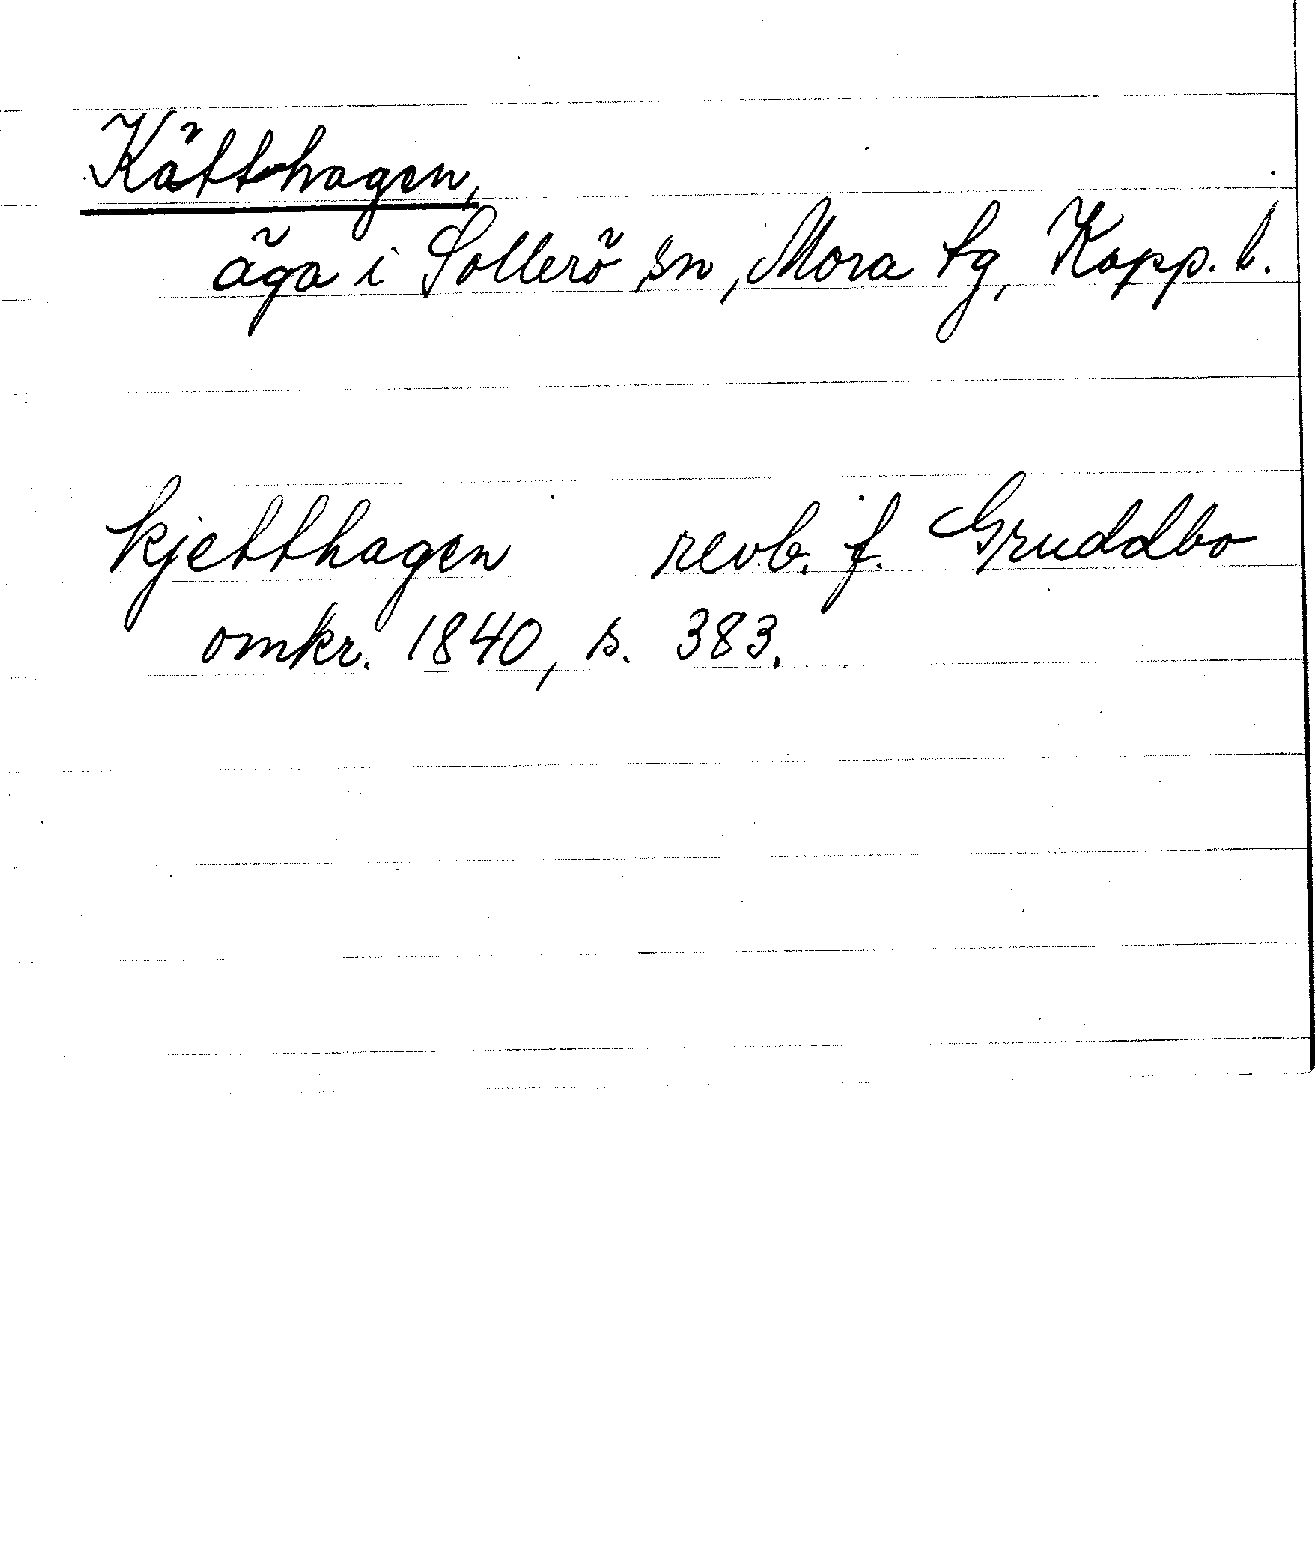 Kätthagen,
äga i Sollerö sn, Mora tg, Kopp. l.
kjetthagen revb. f. Gruddbo
omkr. 1840, s. 383.